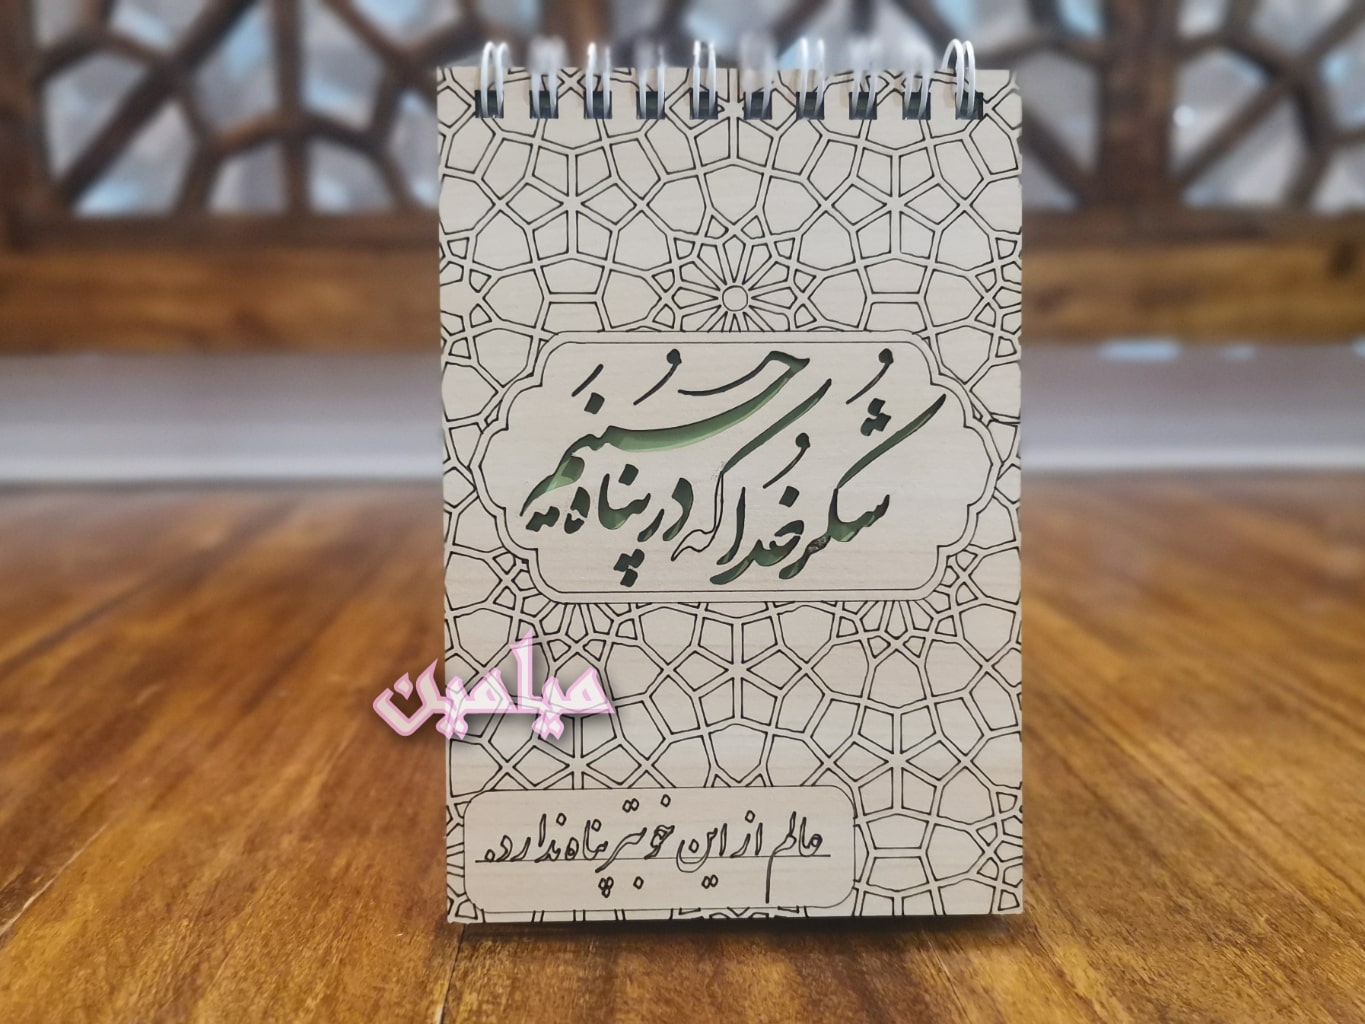 شکر خدا که در پناه حسینم
میامین
عالم از این خوبتر پناه ندارد